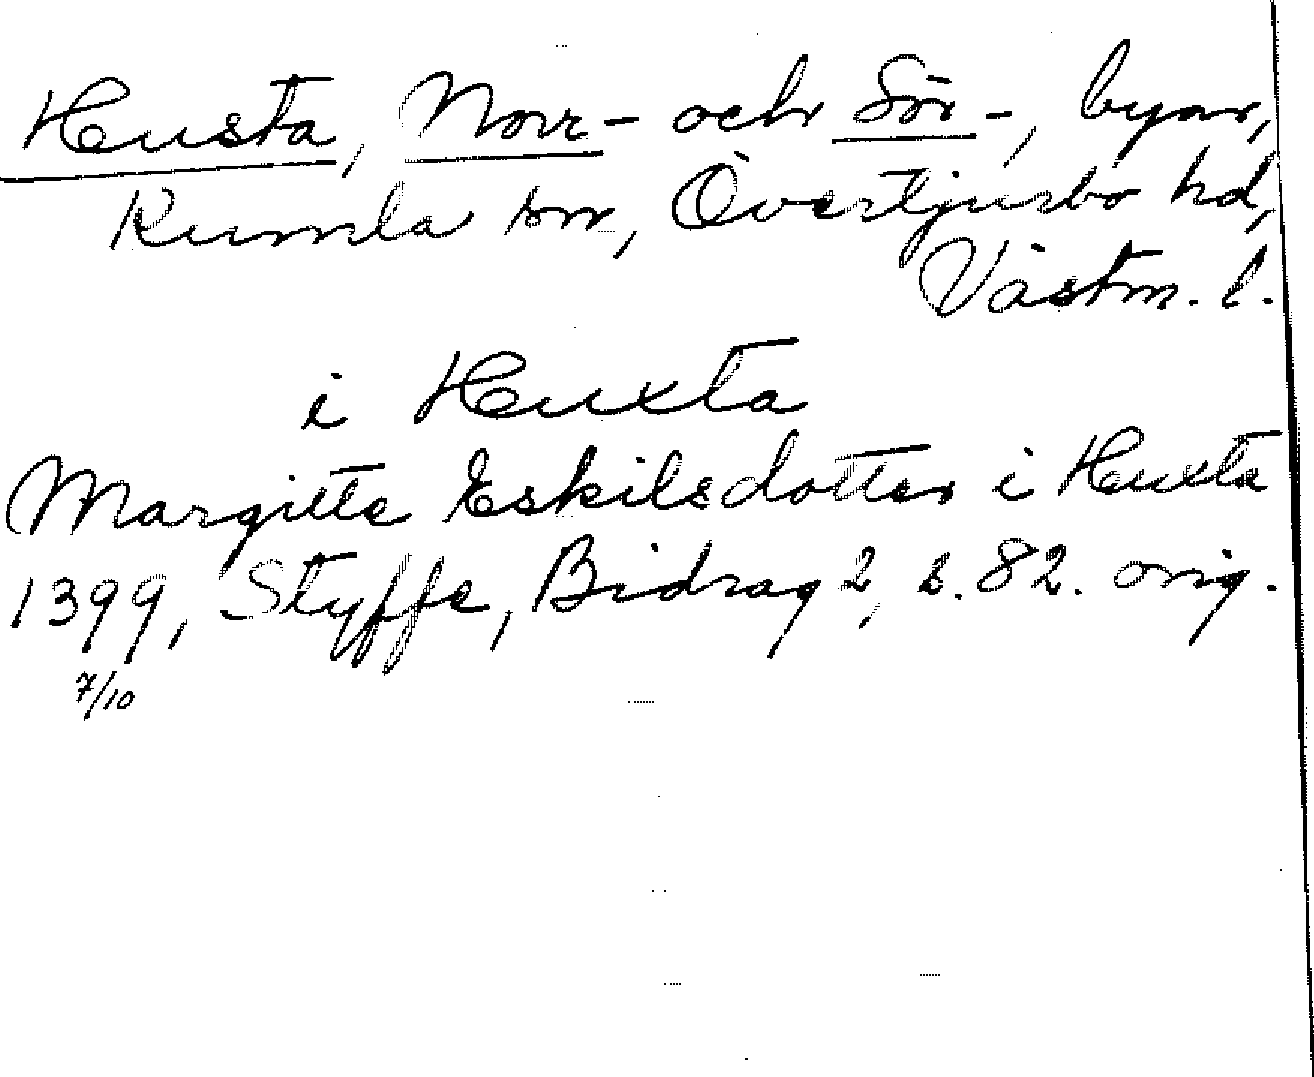 Husta, Norr- och Sör-, byar,
Rumla sn, Övertjurbo hd,
Västm. l.
i Huxta
Margitte Eskilsdotter i Huxta
1399, Styffe, Bidrag 2, s. 82. orig.
7/10